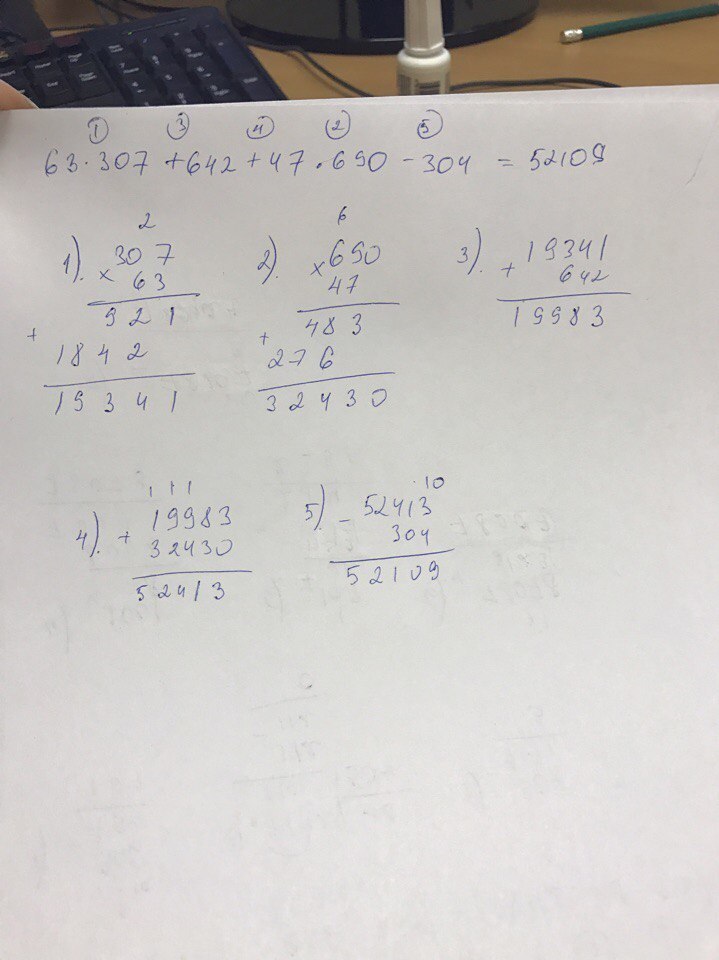 ① ③ ④ ② ⑤
63·307 + 642 + 47·690 - 304 = 52109
2
1). 307
× 63
921
+
1842
19341
6
2). 690
× 47
483
+
276
32430
3). 19341
+ 642
19983
1 1 1
4). + 19983
32430
52413
10
5) - 52413
304
52109